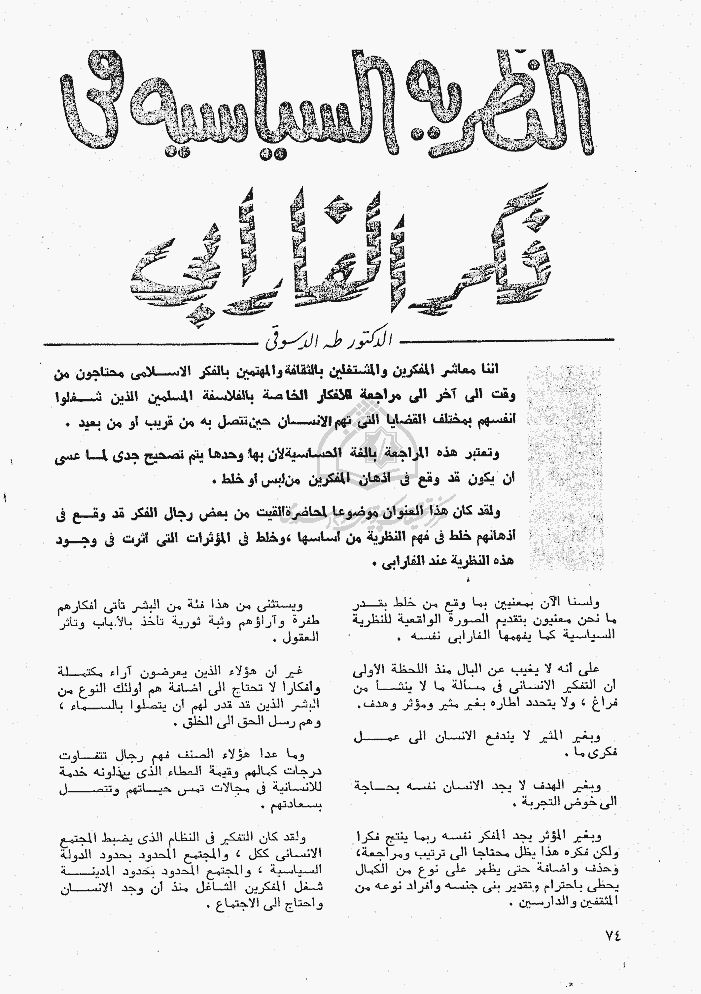 النظرية السياسية فى
فكر الفارابى
الدكتور طه الدسوقى
اننا معاشر المفكرين والمشتغلين بالثقافة والمهتمين بالفكر الاسلامى محتاجون من
وقت الى آخر الى مراجعة للأفكار الخاصة بالفلاسفة المسلمين الذين شغلوا
انفسهم بمختلف القضايا التى تهم الانسان حين تتصل به من قريب او من بعيد .
وتعتبر هذه المراجعة بالغة الحساسية لأن بها وحدها يتم تصحيح جدى لما عسى
ان يكون قد وقع فى اذهان المفكرين من لبس أو خلط .
ولقد كان هذا العنوان موضوعا لمحاضرة القيت من بعض رجال الفكر قد وقع فى
اذهانهم خلط فى فهم النظرية من أساسها ، وخلط فى المؤثرات التى اثرت فى وجود
هذه النظرية عند الفارابى .
ولسنا الآن بمعنيين بما وقع من خلط بقدر
ما نحن معنيون بتقديم الصورة الواقعية للنظرية
السياسية كما يفهمها الفارابى نفسه .
على أنه لا يغيب عن البال منذ اللحظة الأولى
أن التفكير الانسانى فى مسألة ما لا ينشأ من
فراغ ، ولا يتحدد اطاره بغير مثير ومؤثر وهدف.
وبغير المثير لا يندفع الانسان الى عمل
فكرى ما .
وبغير الهدف لا يجد الانسان نفسه بحاجة
الى خوض التجربة .
وبغير المؤثر يجد المفكر نفسه ربما ينتج فكرا
ولكن فكره هذا يظل محتاجا الى ترتيب ومراجعة،
وحذف واضافة حتى يظهر على نوع من الكمال
يحظى باحترام وتقدير بنى جنسه وأفراد نوعه من
المثقفين والدارسين .
ويستثنى من هذا فئة من البشر تأتى أفكارهم
طفرة وآراؤهم وثبة ثورية تأخذ بالألباب وتأثر
العقول .
غير أن هؤلاء الذين يعرضون آراء مكتملة
وأفكارا لا تحتاج الى اضافة هم أولئك النوع من
البشر الذين قد قدر لهم أن يتصلوا بالسماء ،
وهم رسل الحق الى الخلق .
وما عدا هؤلاء الصنف فهم رجال تتفاوت
درجات كمالهم وقيمة العطاء الذى يبذلونه خدمة
للانسانية فى مجالات تمس حياتهم وتتصل
بسعادتهم .
ولقد كان التفكير فى النظام الذى يضبط المجتمع
الانسانى ككل ، والمجتمع المحدود بحدود الدولة
السياسية ، والمجتمع المحدود بحدود المدينة
شغل المفكرين الشاغل منذ أن وجد الانسان
واحتاج الى الاجتماع .
٧٤